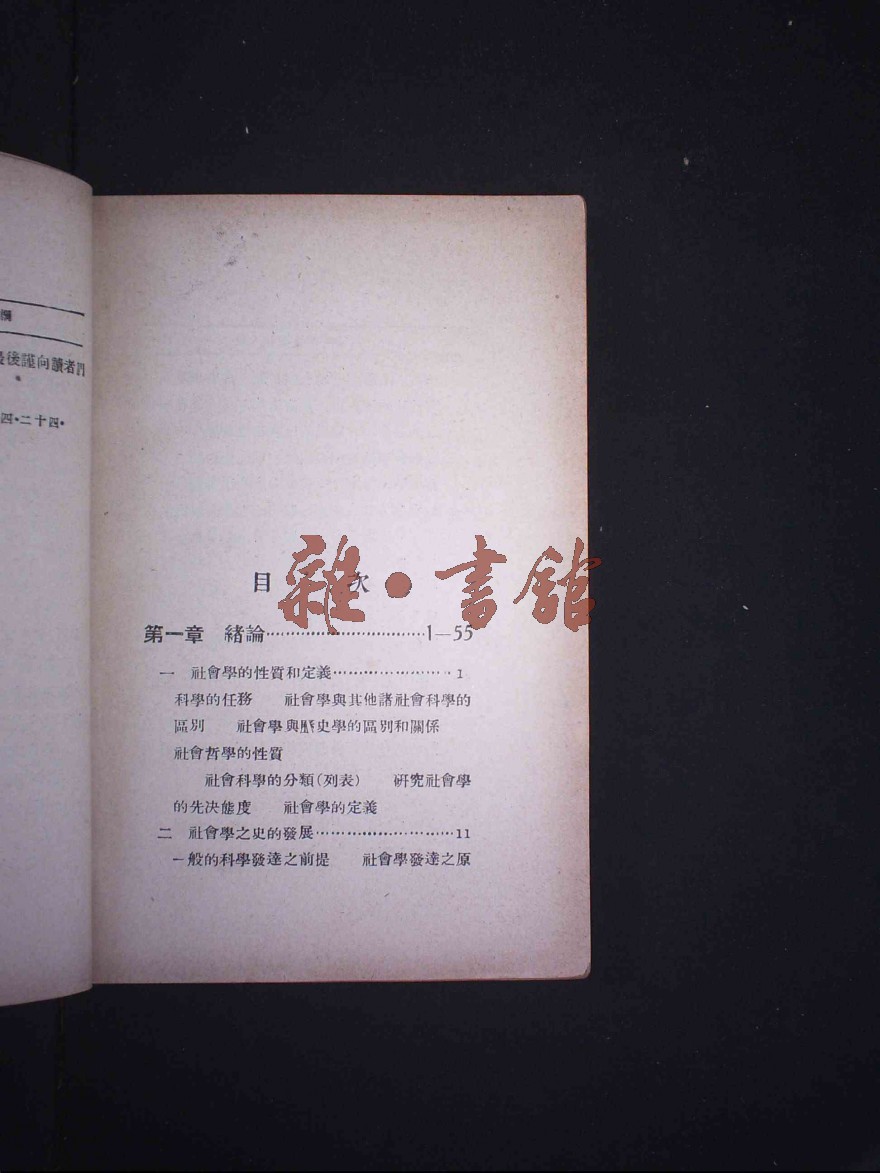 欄
最後謹向讀者
四•二十四•
目 次
雜•書館
第一章 緒論……………………1—55
一 社會學的性質和定義………………1
科學的任務 社會學與其他諸社會科學的
區別 社會學與歷史學的區別和關係
社會哲學的性質
社會科學的分類(列表) 研究社會學
的先決態度 社會學的定義
二 社會學之史的發展……………………11
一般的科學發達之前提 社會學發達之原